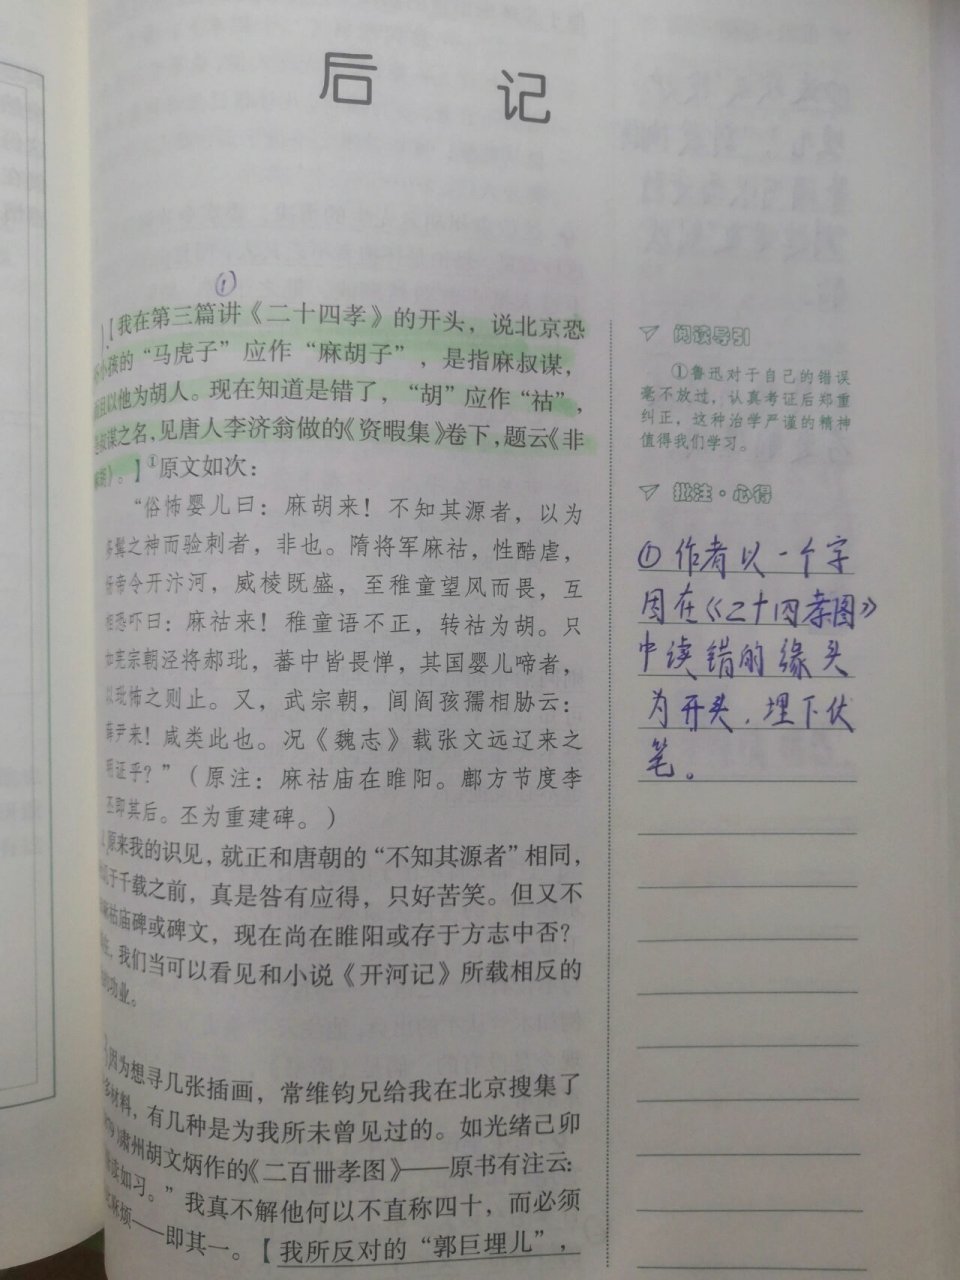 后 记
①
【我在第三篇讲《二十四孝》的开头，说北京恐
小孩的“马虎子”应作“麻胡子”，是指麻叔谋，
以他为胡人。现在知道是错了，“胡”应作“祜”，
谋之名，见唐人李济翁做的《资暇集》卷下，题云《非
》。】①原文如次：
“俗怖婴儿曰：麻胡来！不知其源者，以为
髯之神而验刺者，非也。隋将军麻祜，性酷虐，
帝令开汴河，威棱既盛，至稚童望风而畏，互
恐吓曰：麻祜来！稚童语不正，转祜为胡。只
宪宗朝泾将郝玭，蕃中皆畏惮，其国婴儿啼者，
以玭怖之则止。又，武宗朝，闾阎孩孺相胁云：
薛尹来！咸类此也。况《魏志》载张文远辽来之
明证乎？”（原注：麻祜庙在睢阳。鄜方节度李
丕即其后。丕为重建碑。）
原来我的识见，就正和唐朝的“不知其源者”相同，
于千载之前，真是咎有应得，只好苦笑。但又不
麻祜庙碑或碑文，现在尚在睢阳或存于方志中否？
，我们当可以看见和小说《开河记》所载相反的
功业。
因为想寻几张插画，常维钧兄给我在北京搜集了
材料，有几种是为我所未曾见过的。如光绪己卯
肃州胡文炳作的《二百卌孝图》——原书有注云：
读如习。”我真不解他何以不直称四十，而必须
麻烦——即其一。【我所反对的“郭巨埋儿”，
阅读导引
①鲁迅对于自己的错误
毫不放过，认真考证后郑重
纠正，这种治学严谨的精神
值得我们学习。
批注·心得
①作者以一个字
因在《二十四孝图》
中读错的缘头
为开头，埋下伏
笔。